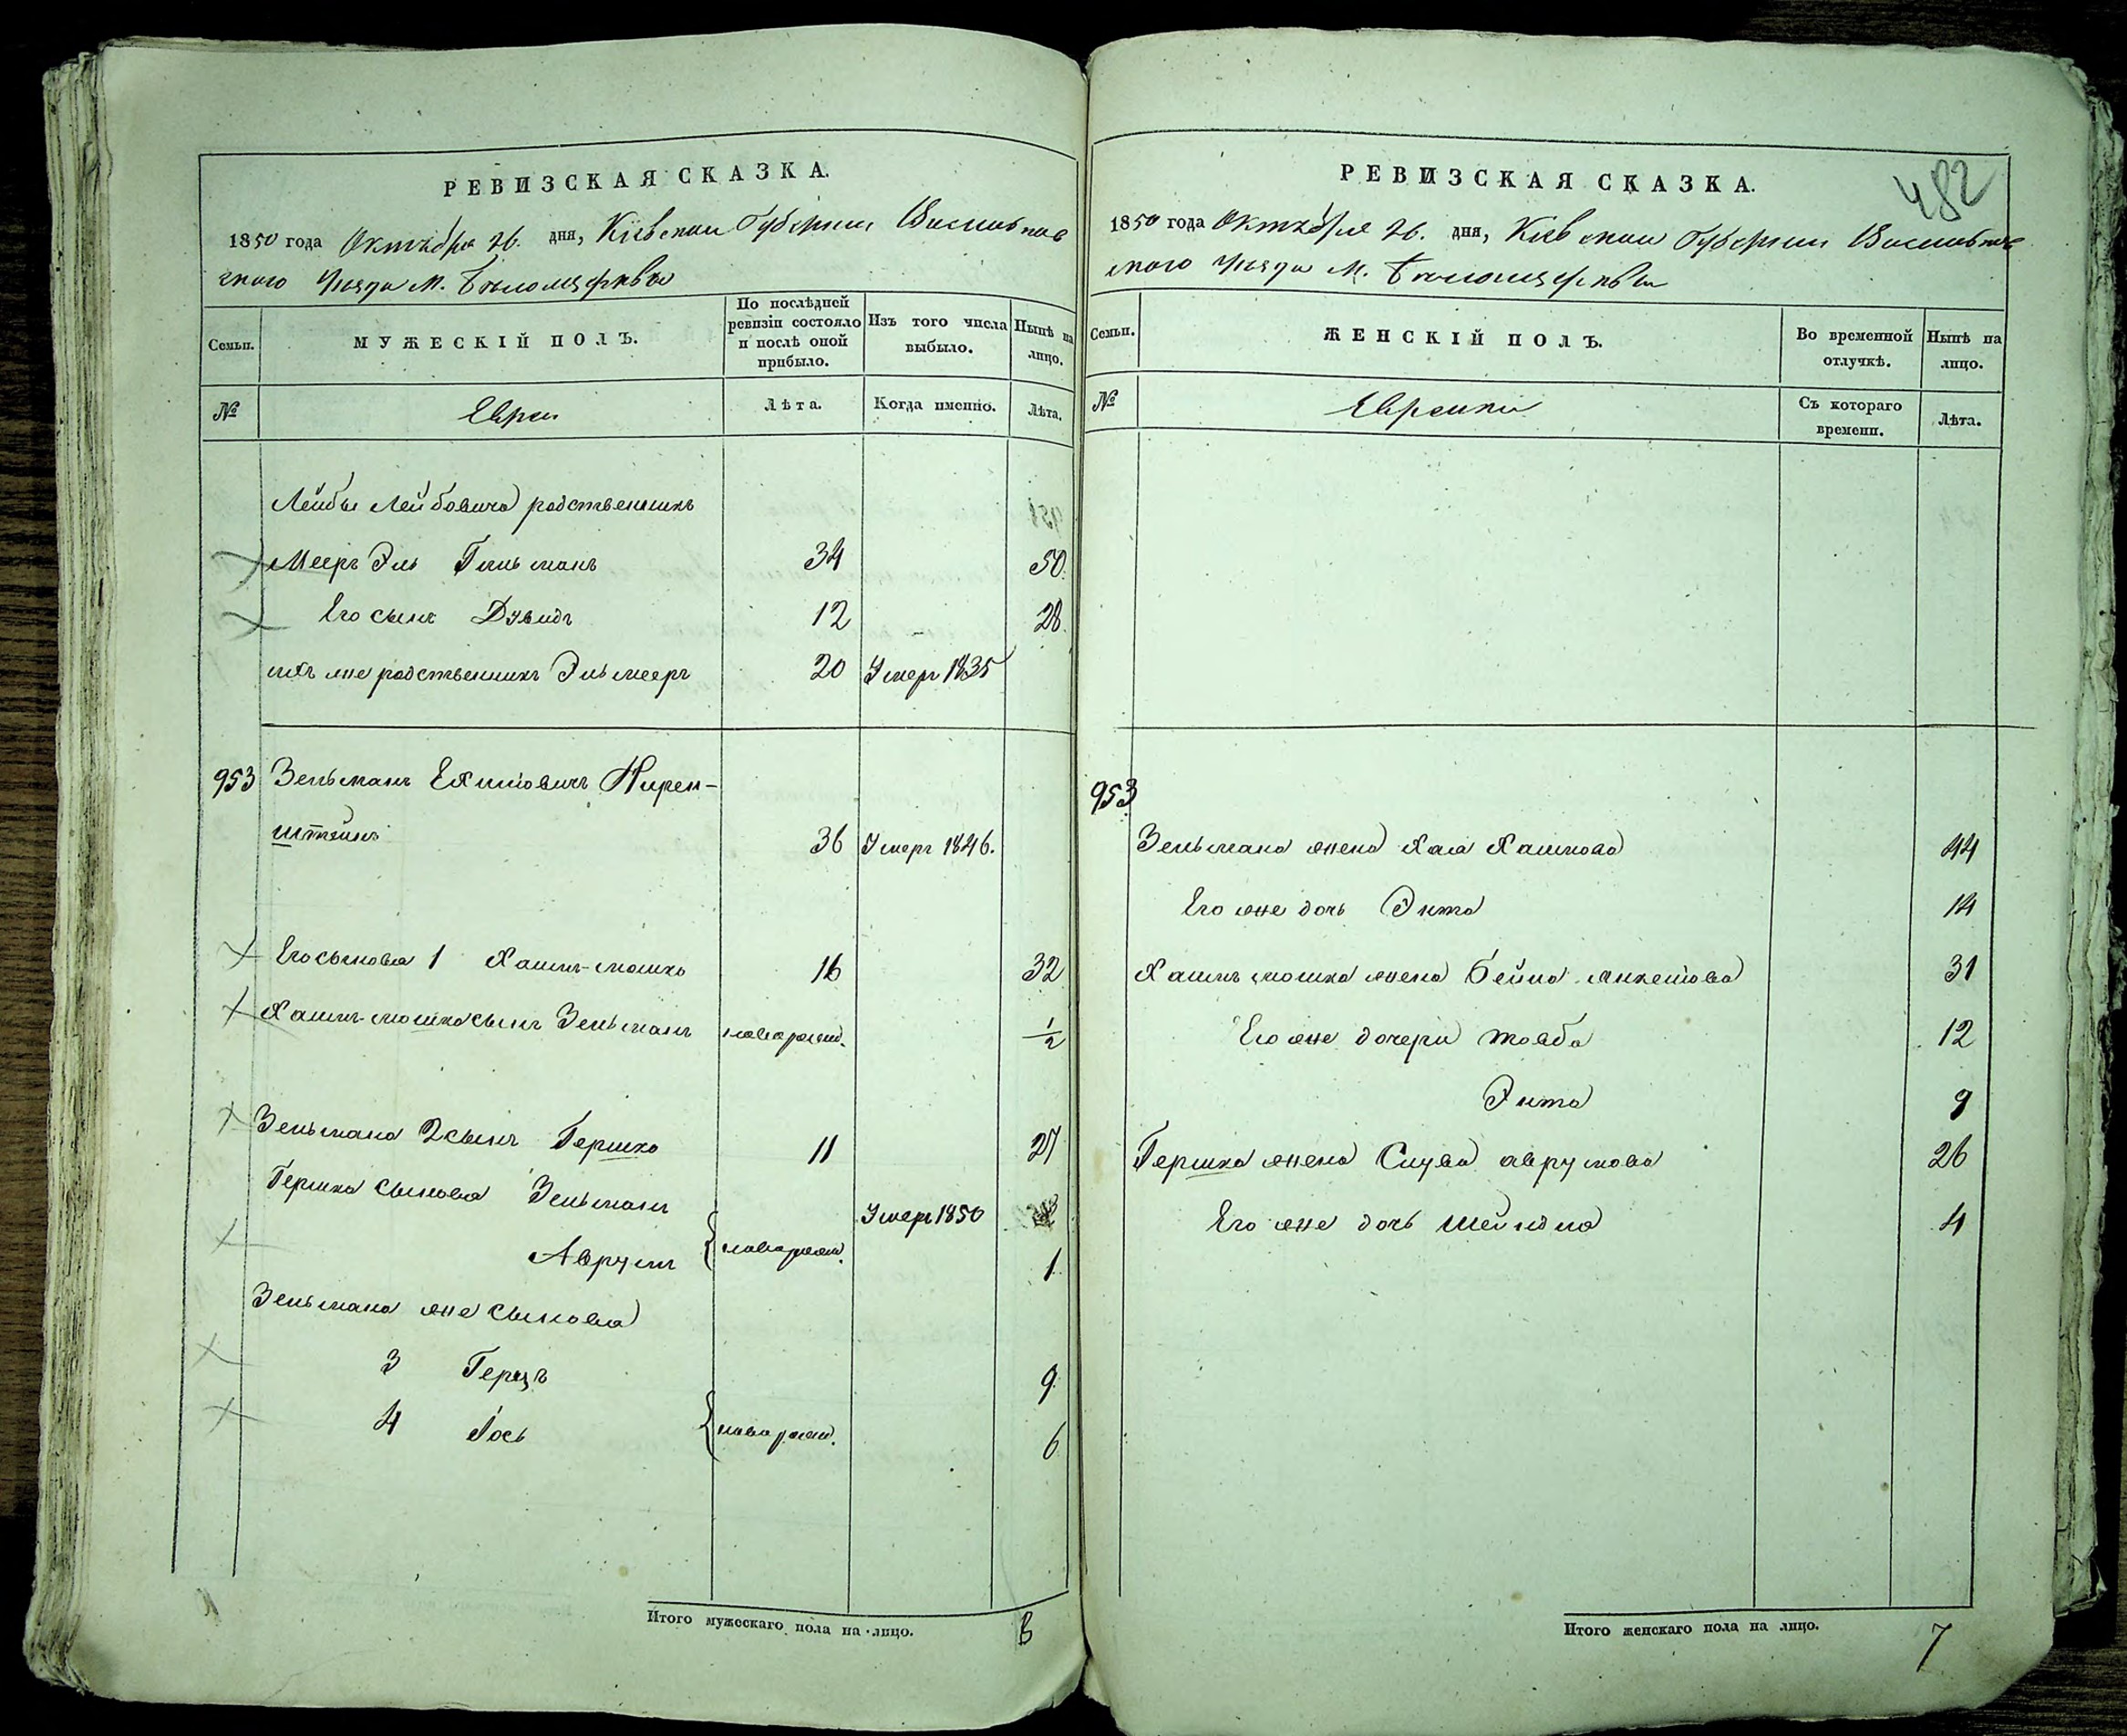 РЕВИЗСКАЯ СКАЗКА.
1850 года Октября 26. дня, Кіевской Губерніи Васильков-
скаго Уезда М. Белоцеркви
Семьи.
МУЖЕСКІЙ ПОЛЪ.
По послѣдней
ревизіи состояло
и послѣ оной
прибыло.
Изъ того числа
выбыло.
Нынѣ на
лицо.
№
Евреи
Лѣта.
Когда именно.
Лѣта.
Лейбы Лейбовича родственникъ
Мееръ Эль Гильманъ 34 50
Его сынъ Дувидъ 12 28
ихъ же родственникъ Эльмееръ 20 Умеръ 1835
953 Зельманъ Хаимовичъ Нирен-
штейнъ 36 Умеръ 1846.
Его сыновья 1 Хаимъ-мошко 16 32
Хаимъ-мошка сынъ Зельманъ новорожд. 1/2
Зельмана 2 сынъ Гершко 11 27
Гершка сыновья Зельманъ Умеръ 1850
Аврумъ новорожд. 1
Зельмана же сыновья
3 Герцъ 9
4 Іось новорожд. 6
Итого мужескаго пола на лицо. 8
482
РЕВИЗСКАЯ СКАЗКА.
1850 года Октября 26. дня, Кіевской Губерніи Васильков-
скаго Уезда М. Белоцеркви
Семьи.
ЖЕНСКІЙ ПОЛЪ.
Во временной
отлучкѣ.
Нынѣ на
лицо.
№
Еврейки
Съ котораго
времени.
Лѣта.
953
Зельмана жена Хая Хаимова 44
Его же дочь Энта 14
Хаимъ мошка жена Бейла 31
Его же дочери Товба 12
Энта 9
Гершка жена Слува аврумова 26
Его же дочь Шейндля 4
Итого женскаго пола на лицо. 7